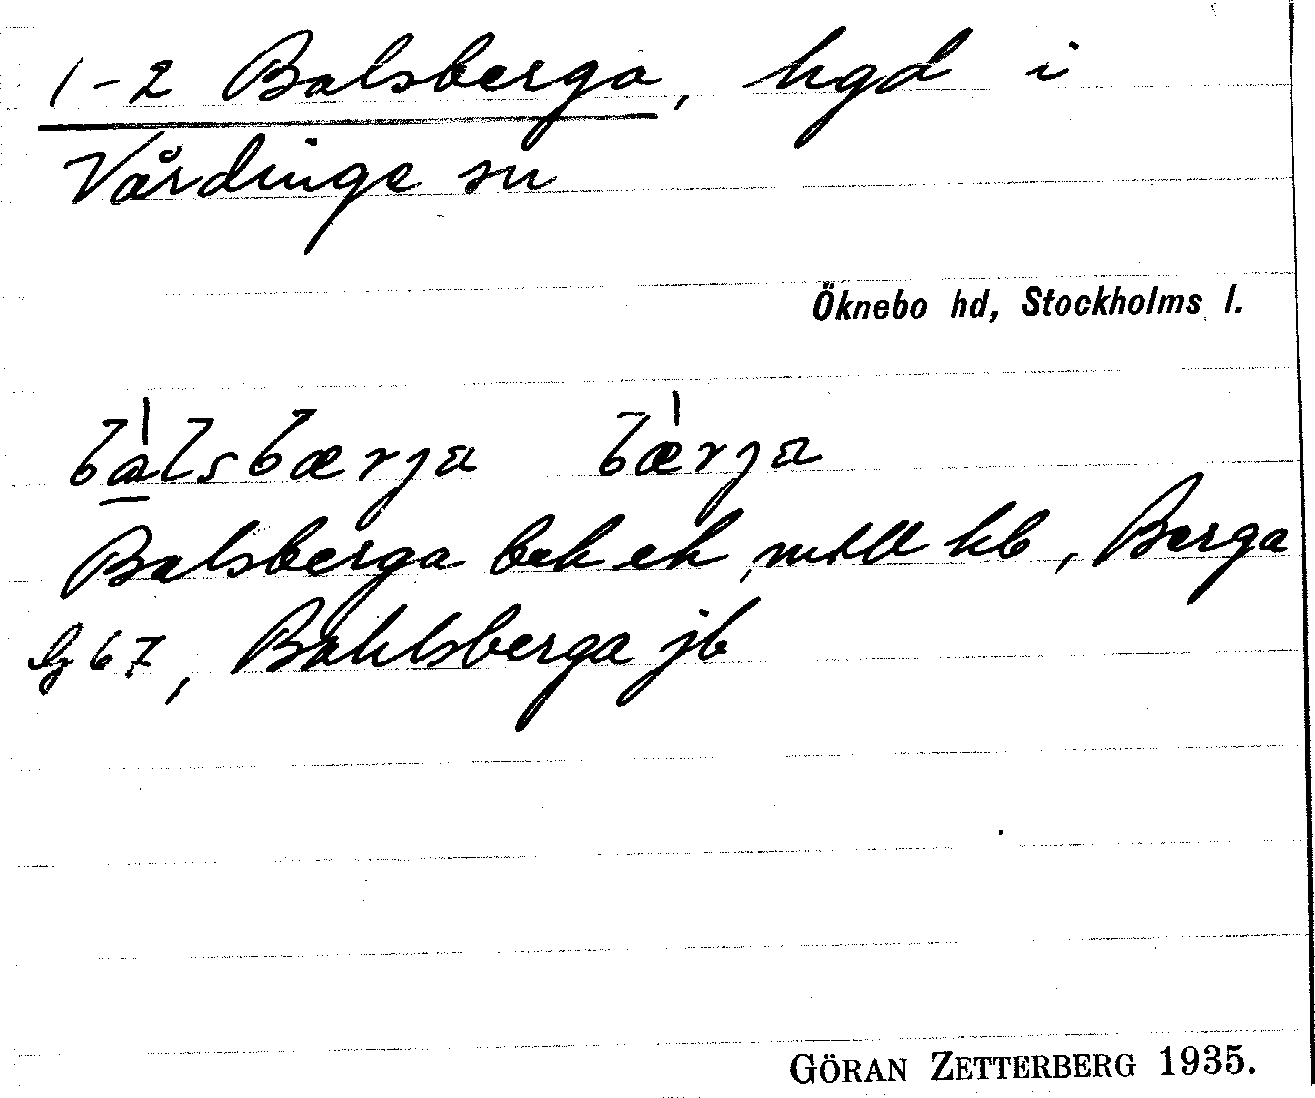 1-2 Balsberga, hgd i
Vårdinge sn
Öknebo hd, Stockholms l.
bàlsbærja bærja
Balsberga bek ek, mtll kb, Berga
lz 67, Bahlsberga jb
GÖRAN ZETTERBERG 1935.